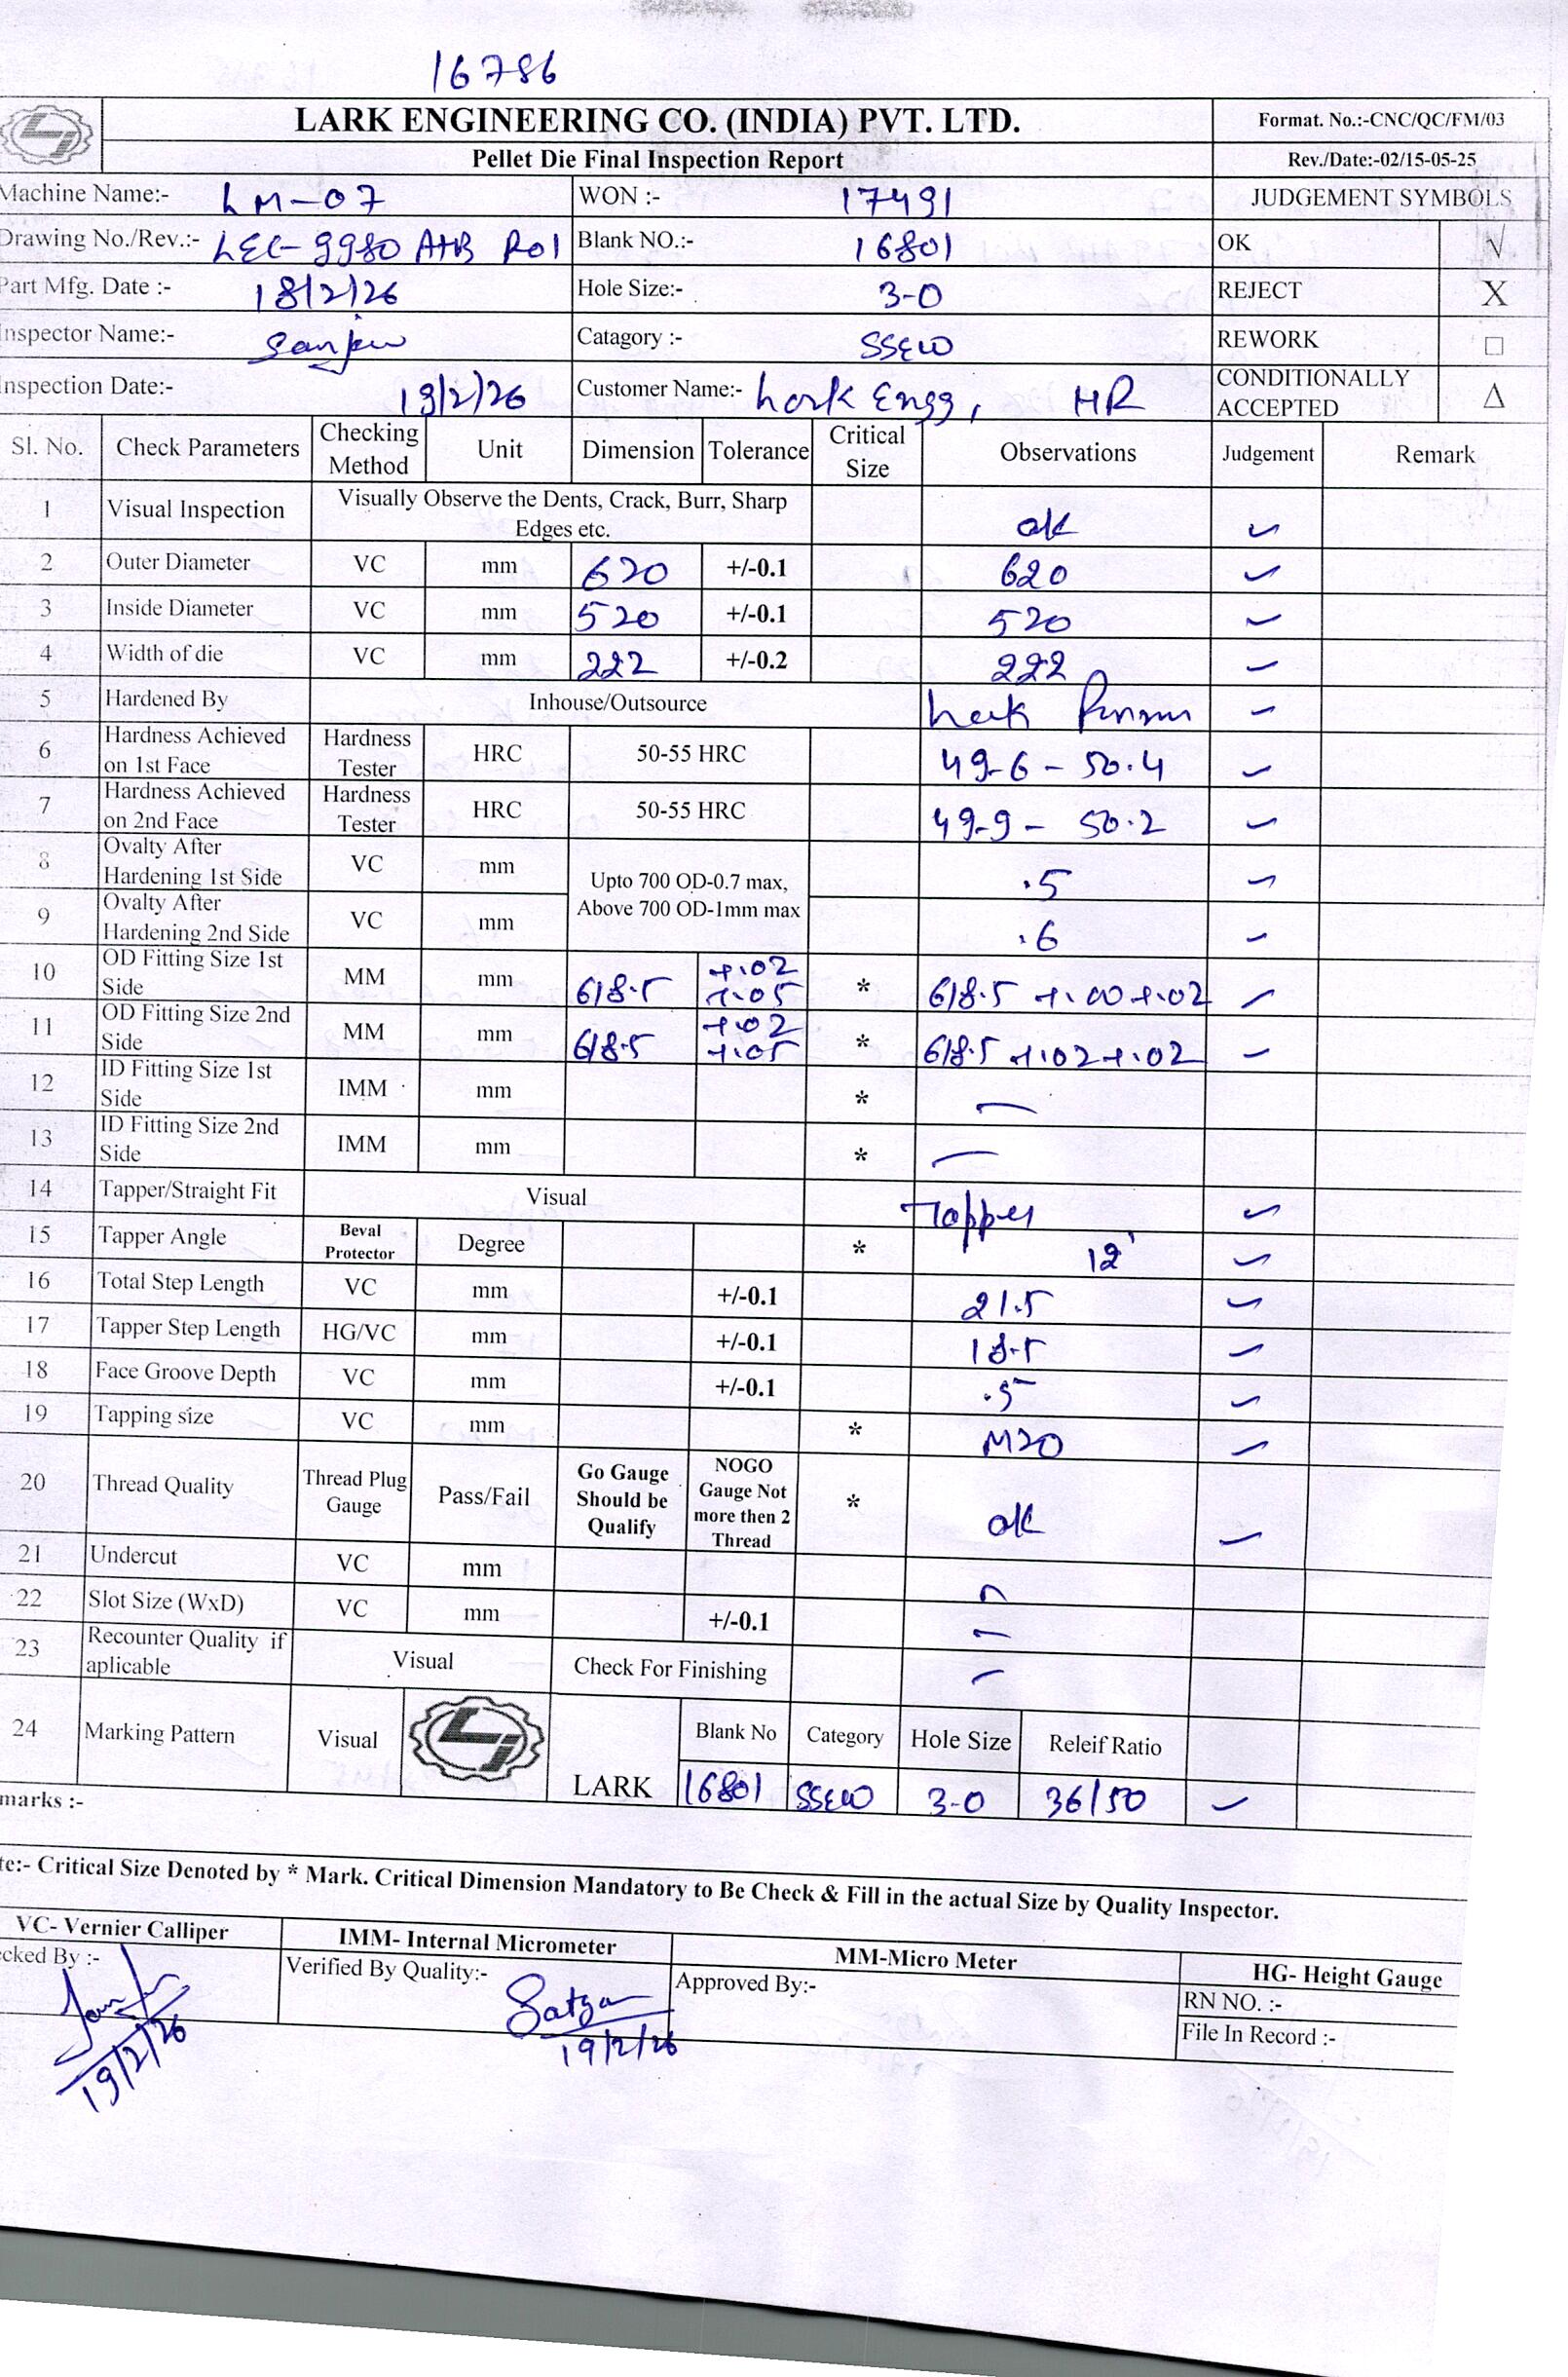 16786
LARK ENGINEERING CO. (INDIA) PVT. LTD.
Format. No.:-CNC/QC/FM/03
Pellet Die Final Inspection Report
Rev./Date:-02/15-05-25
Machine Name:- LM-07 WON :- 17491 JUDGEMENT SYMBOLS
Drawing No./Rev.:- LEC-9980 A+B R01 Blank NO.:- 16801 OK √
Part Mfg. Date :- 18/2/26 Hole Size:- 3-0 REJECT X
nspector Name:- Sanjeev Catagory :- SSEW REWORK □
nspection Date:- 19/2/26 Customer Name:- Lark Engg, HR CONDITIONALLY ACCEPTED Δ
Sl. No. Check Parameters Checking Method Unit Dimension Tolerance Critical Size Observations Judgement Remark
1 Visual Inspection Visually Observe the Dents, Crack, Burr, Sharp Edges etc. ok ✓
2 Outer Diameter VC mm 620 +/-0.1 620 ✓
3 Inside Diameter VC mm 520 +/-0.1 520 ✓
4 Width of die VC mm 222 +/-0.2 222 ✓
5 Hardened By Inhouse/Outsource Lark ✓
6 Hardness Achieved on 1st Face Hardness Tester HRC 50-55 HRC 49-6 - 50.4 ✓
7 Hardness Achieved on 2nd Face Hardness Tester HRC 50-55 HRC 49-9 - 50.2 ✓
8 Ovalty After Hardening 1st Side VC mm Upto 700 OD-0.7 max, Above 700 OD-1mm max .5 ✓
9 Ovalty After Hardening 2nd Side VC mm .6 ✓
10 OD Fitting Size 1st Side MM mm 618.5 +.02 +.05 * 618.5 +.00 +.02 ✓
11 OD Fitting Size 2nd Side MM mm 618.5 +.02 +.05 * 618.5 +.02 +.02 ✓
12 ID Fitting Size 1st Side IMM mm * —
13 ID Fitting Size 2nd Side IMM mm * —
14 Tapper/Straight Fit Visual Tapper ✓
15 Tapper Angle Beval Protector Degree * 12' ✓
16 Total Step Length VC mm +/-0.1 21.5 ✓
17 Tapper Step Length HG/VC mm +/-0.1 18.5 ✓
18 Face Groove Depth VC mm +/-0.1 .5 ✓
19 Tapping size VC mm * M20 ✓
20 Thread Quality Thread Plug Gauge Pass/Fail Go Gauge Should be Qualify NOGO Gauge Not more then 2 Thread * ok ✓
21 Undercut VC mm —
22 Slot Size (WxD) VC mm +/-0.1 —
23 Recounter Quality if aplicable Visual Check For Finishing —
24 Marking Pattern Visual LARK Blank No Category Hole Size Releif Ratio
16801 SSEW 3-0 36/50 ✓
marks :-
te:- Critical Size Denoted by * Mark. Critical Dimension Mandatory to Be Check & Fill in the actual Size by Quality Inspector.
VC- Vernier Calliper IMM- Internal Micrometer MM-Micro Meter HG- Height Gauge
cked By :- Verified By Quality:- Satyam Approved By:- RN NO. :-
File In Record :-
19/2/26 19/2/26